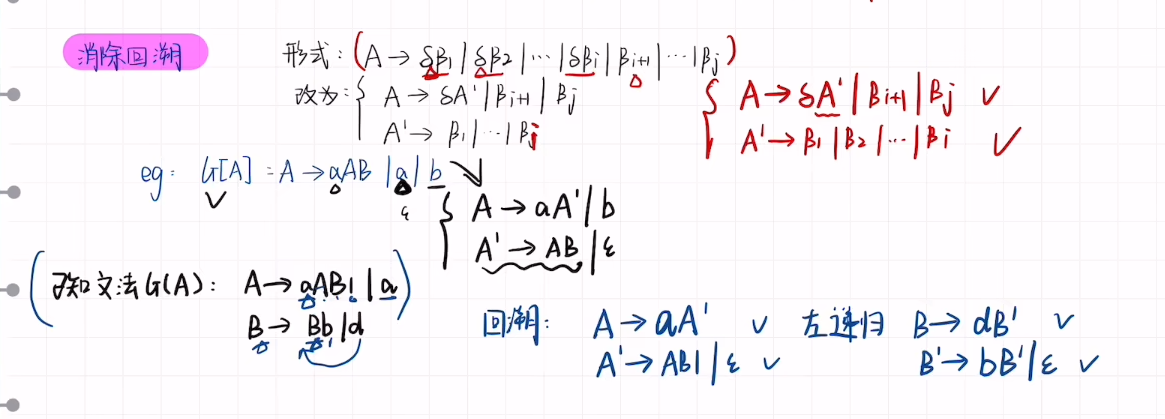 消除回溯
形式：(A → δβ1 | δβ2 | … | δβi | βi+1 | … | βj)
改为：{ A → δA' | βi+1 | βj
A' → β1 | … | βj
{ A → δA' | βi+1 | βj ✓
A' → β1 | β2 | … | βi ✓
eg： G[A] : A → aAB | a | b
ε
{ A → aA' | b
A' → AB | ε
(已知文法G(A)： A → aABl | a)
B → Bb | d
回溯： A → aA' ✓
A' → ABl | ε ✓
左递归 B → dB' ✓
B' → bB' | ε ✓